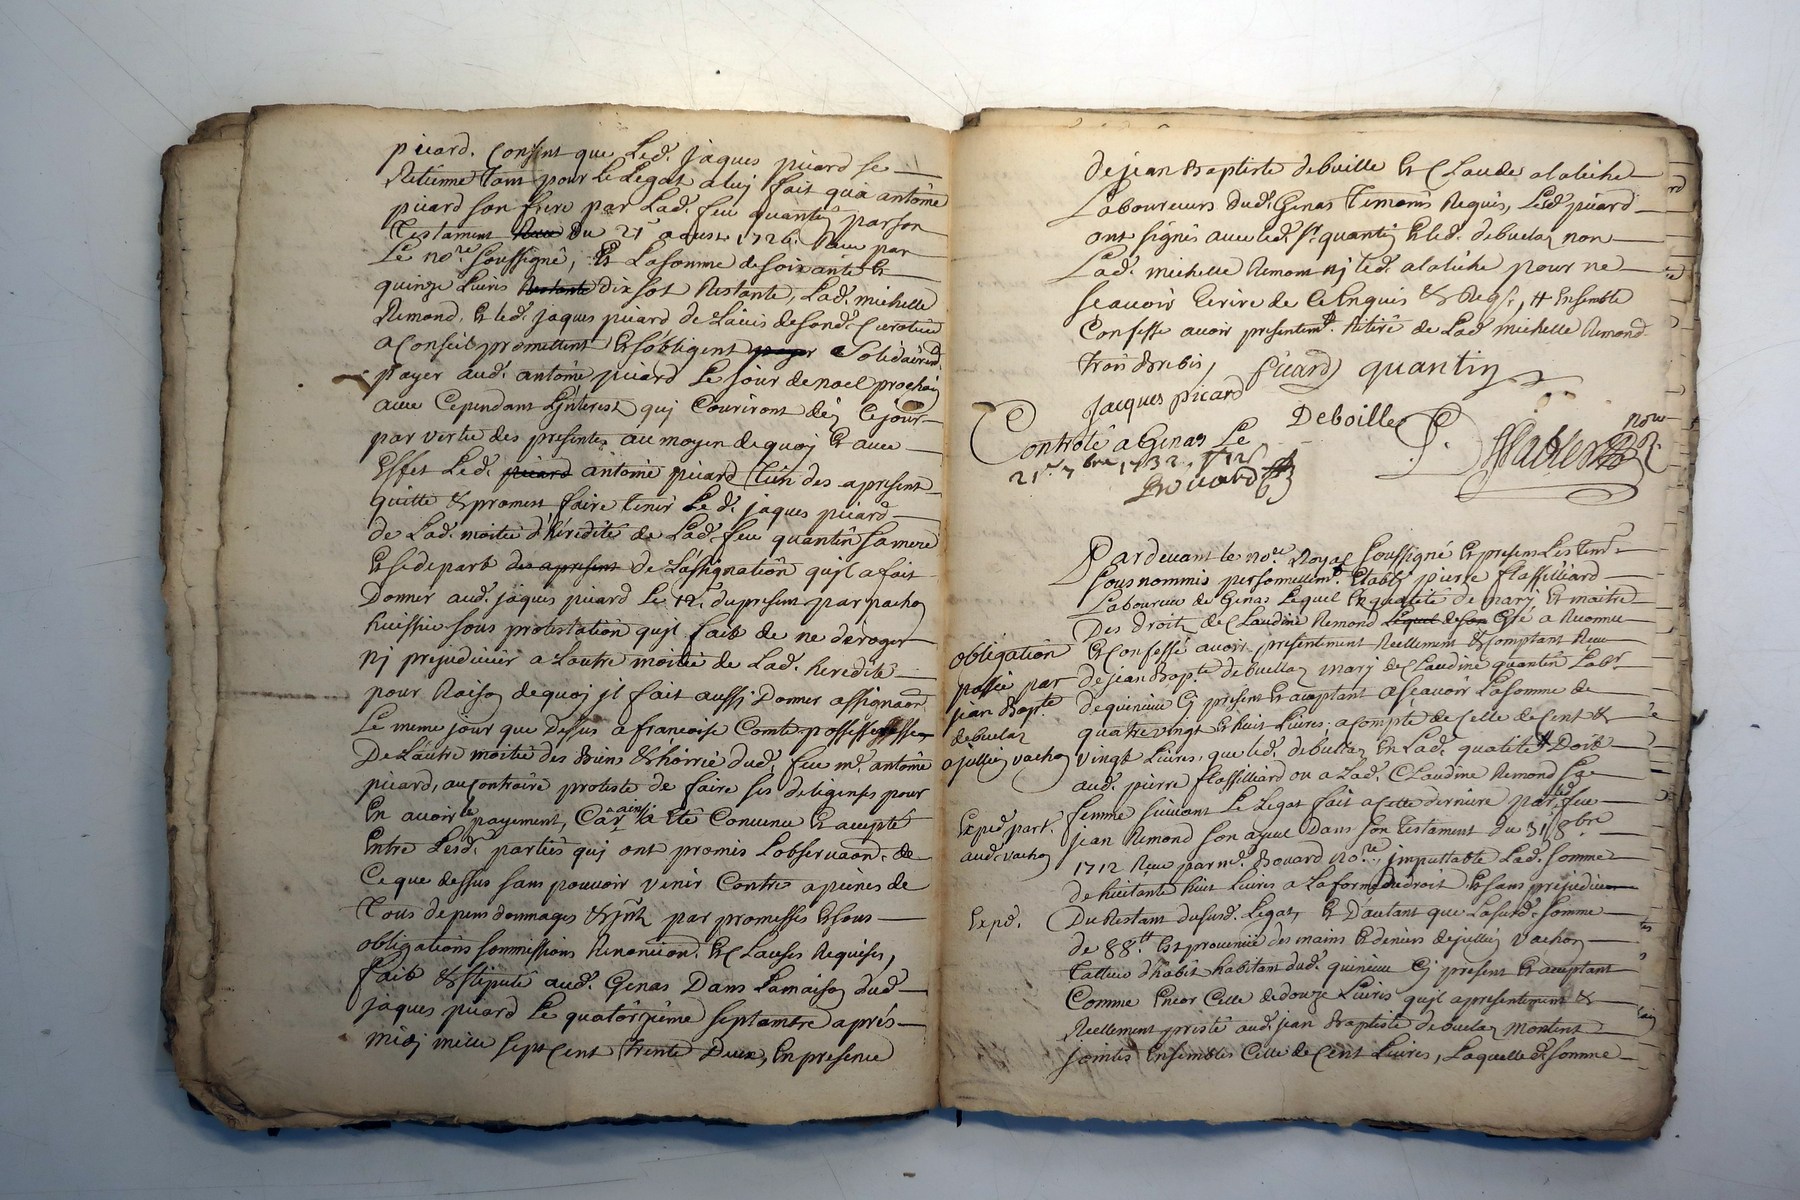 picard. Consent que Led. jaques picard se
Retienne tant pour le Legat a luy fait qu'a antoine
picard son frere par Lad. feu quantin par son
Testament Du 21 aoust 1726. Receu par
Le no.re soussigné, Et La somme de soixante Et
quinze Livres dix sol Restante, Lad. michelle
Remond, Et led. jaques picard de L'avis de sond. Curateur
a Conseils promettent Et s'obligent Solidairem.t
payer aud. antoine picard Le jour de noel prochain
avec Cependant L'jnterest quj Couriront dez Cejour
par vertu des presentes au moyen de quoy Et avec
Effet Led. antoine picard tien des apresent
quitte & promet faire tenir Led. jaques picard
de Lad. moitié d'héredité de Lad. feu quantin sa mere
Et se depart de L'assignation qu'jl a fait
Donner aud. jaques picard Le 12. du present par vachon
huissier sous protestation qu'jl fait de ne deroger
nj prejudicier a L'autre moitié de Lad. heredité
pour Raison de quoj jl fait aussj Donner assignaon
Le meme jour que Dessus a francoise Comte
De L'autre moitié des Biens & hoirie dud. feu m.e antoine
picard, au Contraire proteste de faire ses diligences pour
En avoir le payement, Car ainsi a Eté Convenu Et accepté
Entre Lesd. parties quj ont promis L'observaon. de
Ce que dessus sans pouvoir venir Contre a peines de
Tous depens dommages & jnt. par promesses Et sous
obligations sommissions Renoncion. Et Clauses Requises,
fait & stipulé aud. Genas Dans La maison dud.
jaques picard Le quatorzieme septembre aprés
midj mille sept cent trente Deux, En presence
de jean Baptiste debuille Et Claude alabiche
Laboureurs dud. Genas temoins Requis, Led. picard
ont signés avec led. S.r quantin Et led. debuelas non
Lad. michelle Remont nj Led. alabiche pour ne
sçavoir Ecrire de Ce Enquis & Reqs, # Ensemble
Confesse avoir presentem.t Retiré de Lad. michelle Remond
trois Brebis, Picard quantin
Jacques picard
Deboille
Controlé a Genas Le
21.e 7bre 1732.
Par devant le no.re Royal soussigné Et present Les tem.s
sous nommés personnellem.t Etably pierre flassilliard
Laboureur de Genas Lequel En qualité de marj Et maitre
Des droits de Claudine Remond Gré a Reconnu
obligation
passée par
jean Bapt.e
debuelas
a jullien vachon
Et Confessé avoir presentement Reellement & Comptant Receu
de jean Bap.te debuellas marj de Claudine quantin Lab.r
de quincieu Cj present Et acceptant a sçavoir La somme de
quatre vingt Et huit Livres a Compte de Celle de Cent &
vingt Livres, que led. debuelas En Lad. qualité # Doit
aud. pierre flassilliard ou a Lad. Claudine Remond sa
femme suivant Le Legat fait a Cette derniere par led. feu
Exped. part.
aud. vachon
jean Remond son ayeul Dans son testament du 31 8bre
1712 Receu par m.e Bouard no.re, jmputtable Lad. somme
de huitante huit Livres a La forme du droit Et sans prejudice
Exped.
Du Restant du susd. Legat, Et D'autant que La susd. somme
de 88.# Est provenüe des mains Et deniers de jullien vachon
tailleur d'habit habitant dud. quincieu Cj present Et acceptant
Comme Encor Celle de douze Livres qu'jl a presentement &
Reellement presté aud. jean Baptiste debuelas montent
jointes Ensembles Celle de Cent Livres, Laquelle d. somme